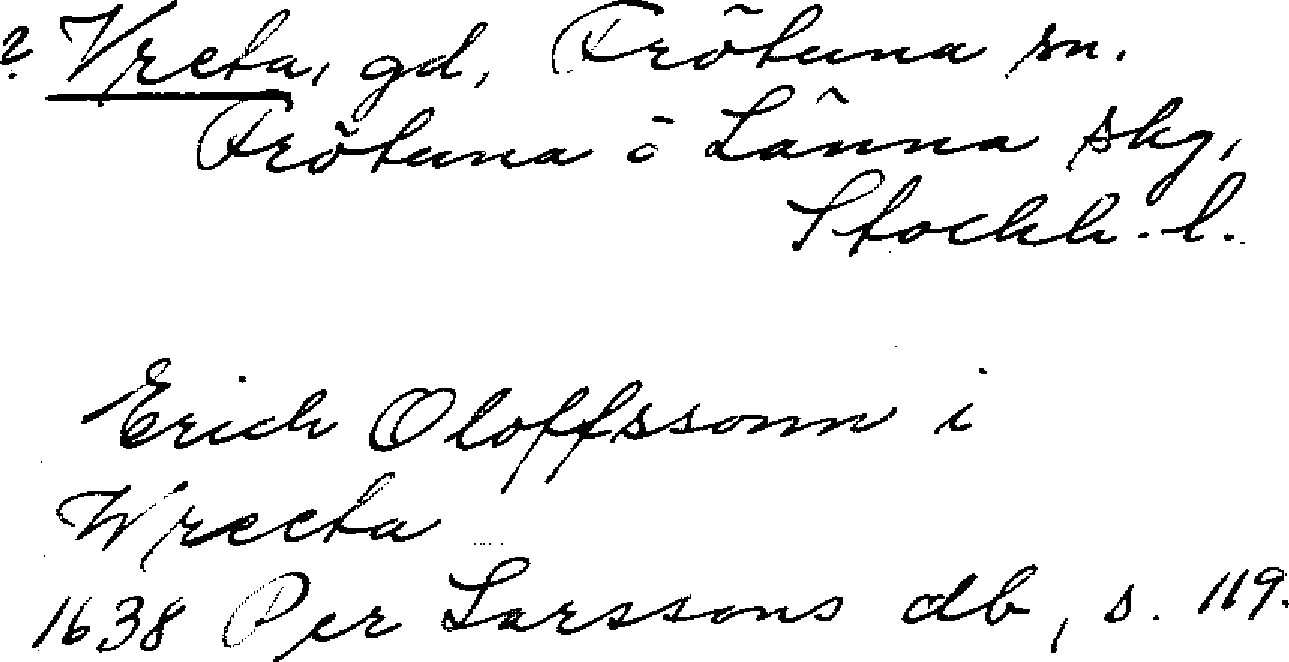 ? Vreta, gd, Frötuna sn.
Frötuna o Länna skg,
Stockh. l.
Erich Oloffssonn i
Wreeta
1638 Per Larssons db, s. 119.